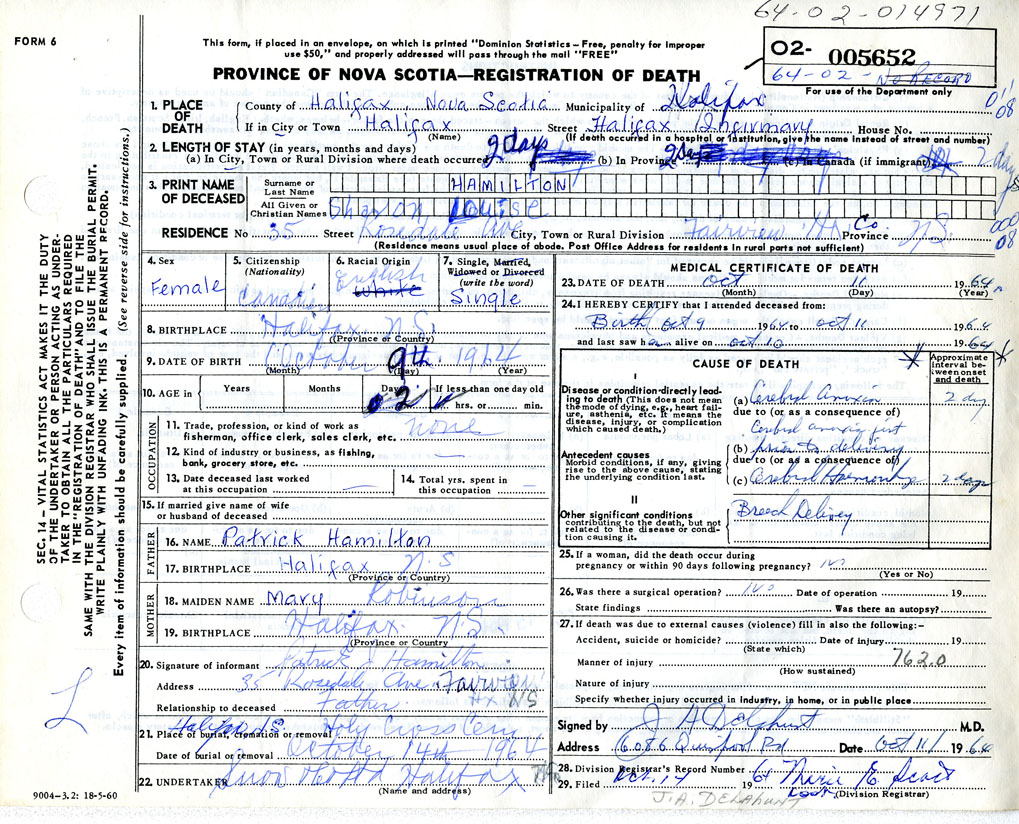 64-02-014971
FORM 6
This form, if placed in an envelope, on which is printed "Dominion Statistics – Free, penalty for improper
use $50," and properly addressed will pass through the mail "FREE"
02- 005652
64-02- NO RECORD
For use of the Department only
PROVINCE OF NOVA SCOTIA—REGISTRATION OF DEATH
1. PLACE OF DEATH
County of Halifax Nova Scotia Municipality of Halifax
If in City or Town Halifax Street Halifax Infirmary House No.
(Name) (If death occurred in a hospital or institution, give the name instead of street and number)
2. LENGTH OF STAY (in years, months and days)
(a) In City, Town or Rural Division where death occurred 2 days (b) In Province 2 Days (c) In Canada (if immigrant)
3. PRINT NAME OF DECEASED
Surname or Last Name HAMILTON
All Given or Christian Names Sharon LOUISE
RESIDENCE No 35 Street Rosedale Ave City, Town or Rural Division Fairview Hx Co Province NS
(Residence means usual place of abode. Post Office Address for residents in rural parts not sufficient)
4. Sex
Female
5. Citizenship
(Nationality)
6. Racial Origin
English
White
7. Single, Married,
Widowed or Divorced
(write the word)
Single
8. BIRTHPLACE Halifax N.S.
(Province or Country)
9. DATE OF BIRTH October 9th 1964
(Month) (Day) (Year)
10. AGE in Years Months Days If less than one day old
2 hrs. or min.
OCCUPATION
11. Trade, profession, or kind of work as
fisherman, office clerk, sales clerk, etc. none
12. Kind of industry or business, as fishing,
bank, grocery store, etc. —
13. Date deceased last worked
at this occupation —
14. Total yrs. spent in
this occupation —
15. If married give name of wife
or husband of deceased
FATHER
16. NAME Patrick Hamilton
17. BIRTHPLACE Halifax N S
(Province or Country)
MOTHER
18. MAIDEN NAME Mary Robinson
19. BIRTHPLACE Halifax N.S.
(Province or Country)
20. Signature of informant Patrick J Hamilton
Address 35 Rosedale Ave. Fairview
Hx NS
Relationship to deceased Father
21. Place of burial, cremation or removal Halifax N.S. Holy Cross Cem
Date of burial or removal October 14th 1964
22. UNDERTAKER Snow Halifax
(Name and address)
9004–3.2: 18-5-60
MEDICAL CERTIFICATE OF DEATH
23. DATE OF DEATH Oct 11 1964
(Month) (Day) (Year)
24. I HEREBY CERTIFY that I attended deceased from:
Birth (Oct 9 1964 to Oct 11 1964
and last saw her alive on Oct 10 1964
CAUSE OF DEATH
Approximate interval between onset and death
I
Disease or condition directly leading to death (This does not mean
the mode of dying, e.g., heart failure, asthenia, etc. It means the
disease, injury, or complication
which caused death.)
(a) Cerebral Anoxia 2 day
due to (or as a consequence of)
Cerebral anoxia just
(b) prior to delivery
due to (or as a consequence of)
Antecedent causes
Morbid conditions, if any, giving
rise to the above cause, stating
the underlying condition last.
(c) Cerebral Hemorrhage 2 days
II
Other significant conditions
contributing to the death, but not
related to the disease or condition causing it.
Breech Delivery
25. If a woman, did the death occur during
pregnancy or within 90 days following pregnancy? no
(Yes or No)
26. Was there a surgical operation? no Date of operation 19
State findings Was there an autopsy?
27. If death was due to external causes (violence) fill in also the following:–
Accident, suicide or homicide? Date of injury 19
(State which)
Manner of injury 762.0
(How sustained)
Nature of injury
Specify whether injury occurred in industry, in home, or in public place
Signed by J A Delahunt M.D.
Address 6086 Quinpool Rd Date Oct 11 1964
28. Division Registrar's Record Number
29. Filed Oct. 14 1964 Marie E. Scott
(Division Registrar)
J.A. DELAHUNT
SEC. 14 – VITAL STATISTICS ACT MAKES IT THE DUTY
OF THE UNDERTAKER OR PERSON ACTING AS UNDERTAKER TO OBTAIN ALL THE PARTICULARS REQUIRED
IN THE "REGISTRATION OF DEATH" AND TO FILE THE
SAME WITH THE DIVISION REGISTRAR WHO SHALL ISSUE THE BURIAL PERMIT.
WRITE PLAINLY WITH UNFADING INK. THIS IS A PERMANENT RECORD.
Every item of information should be carefully supplied. (See reverse side for instructions.)